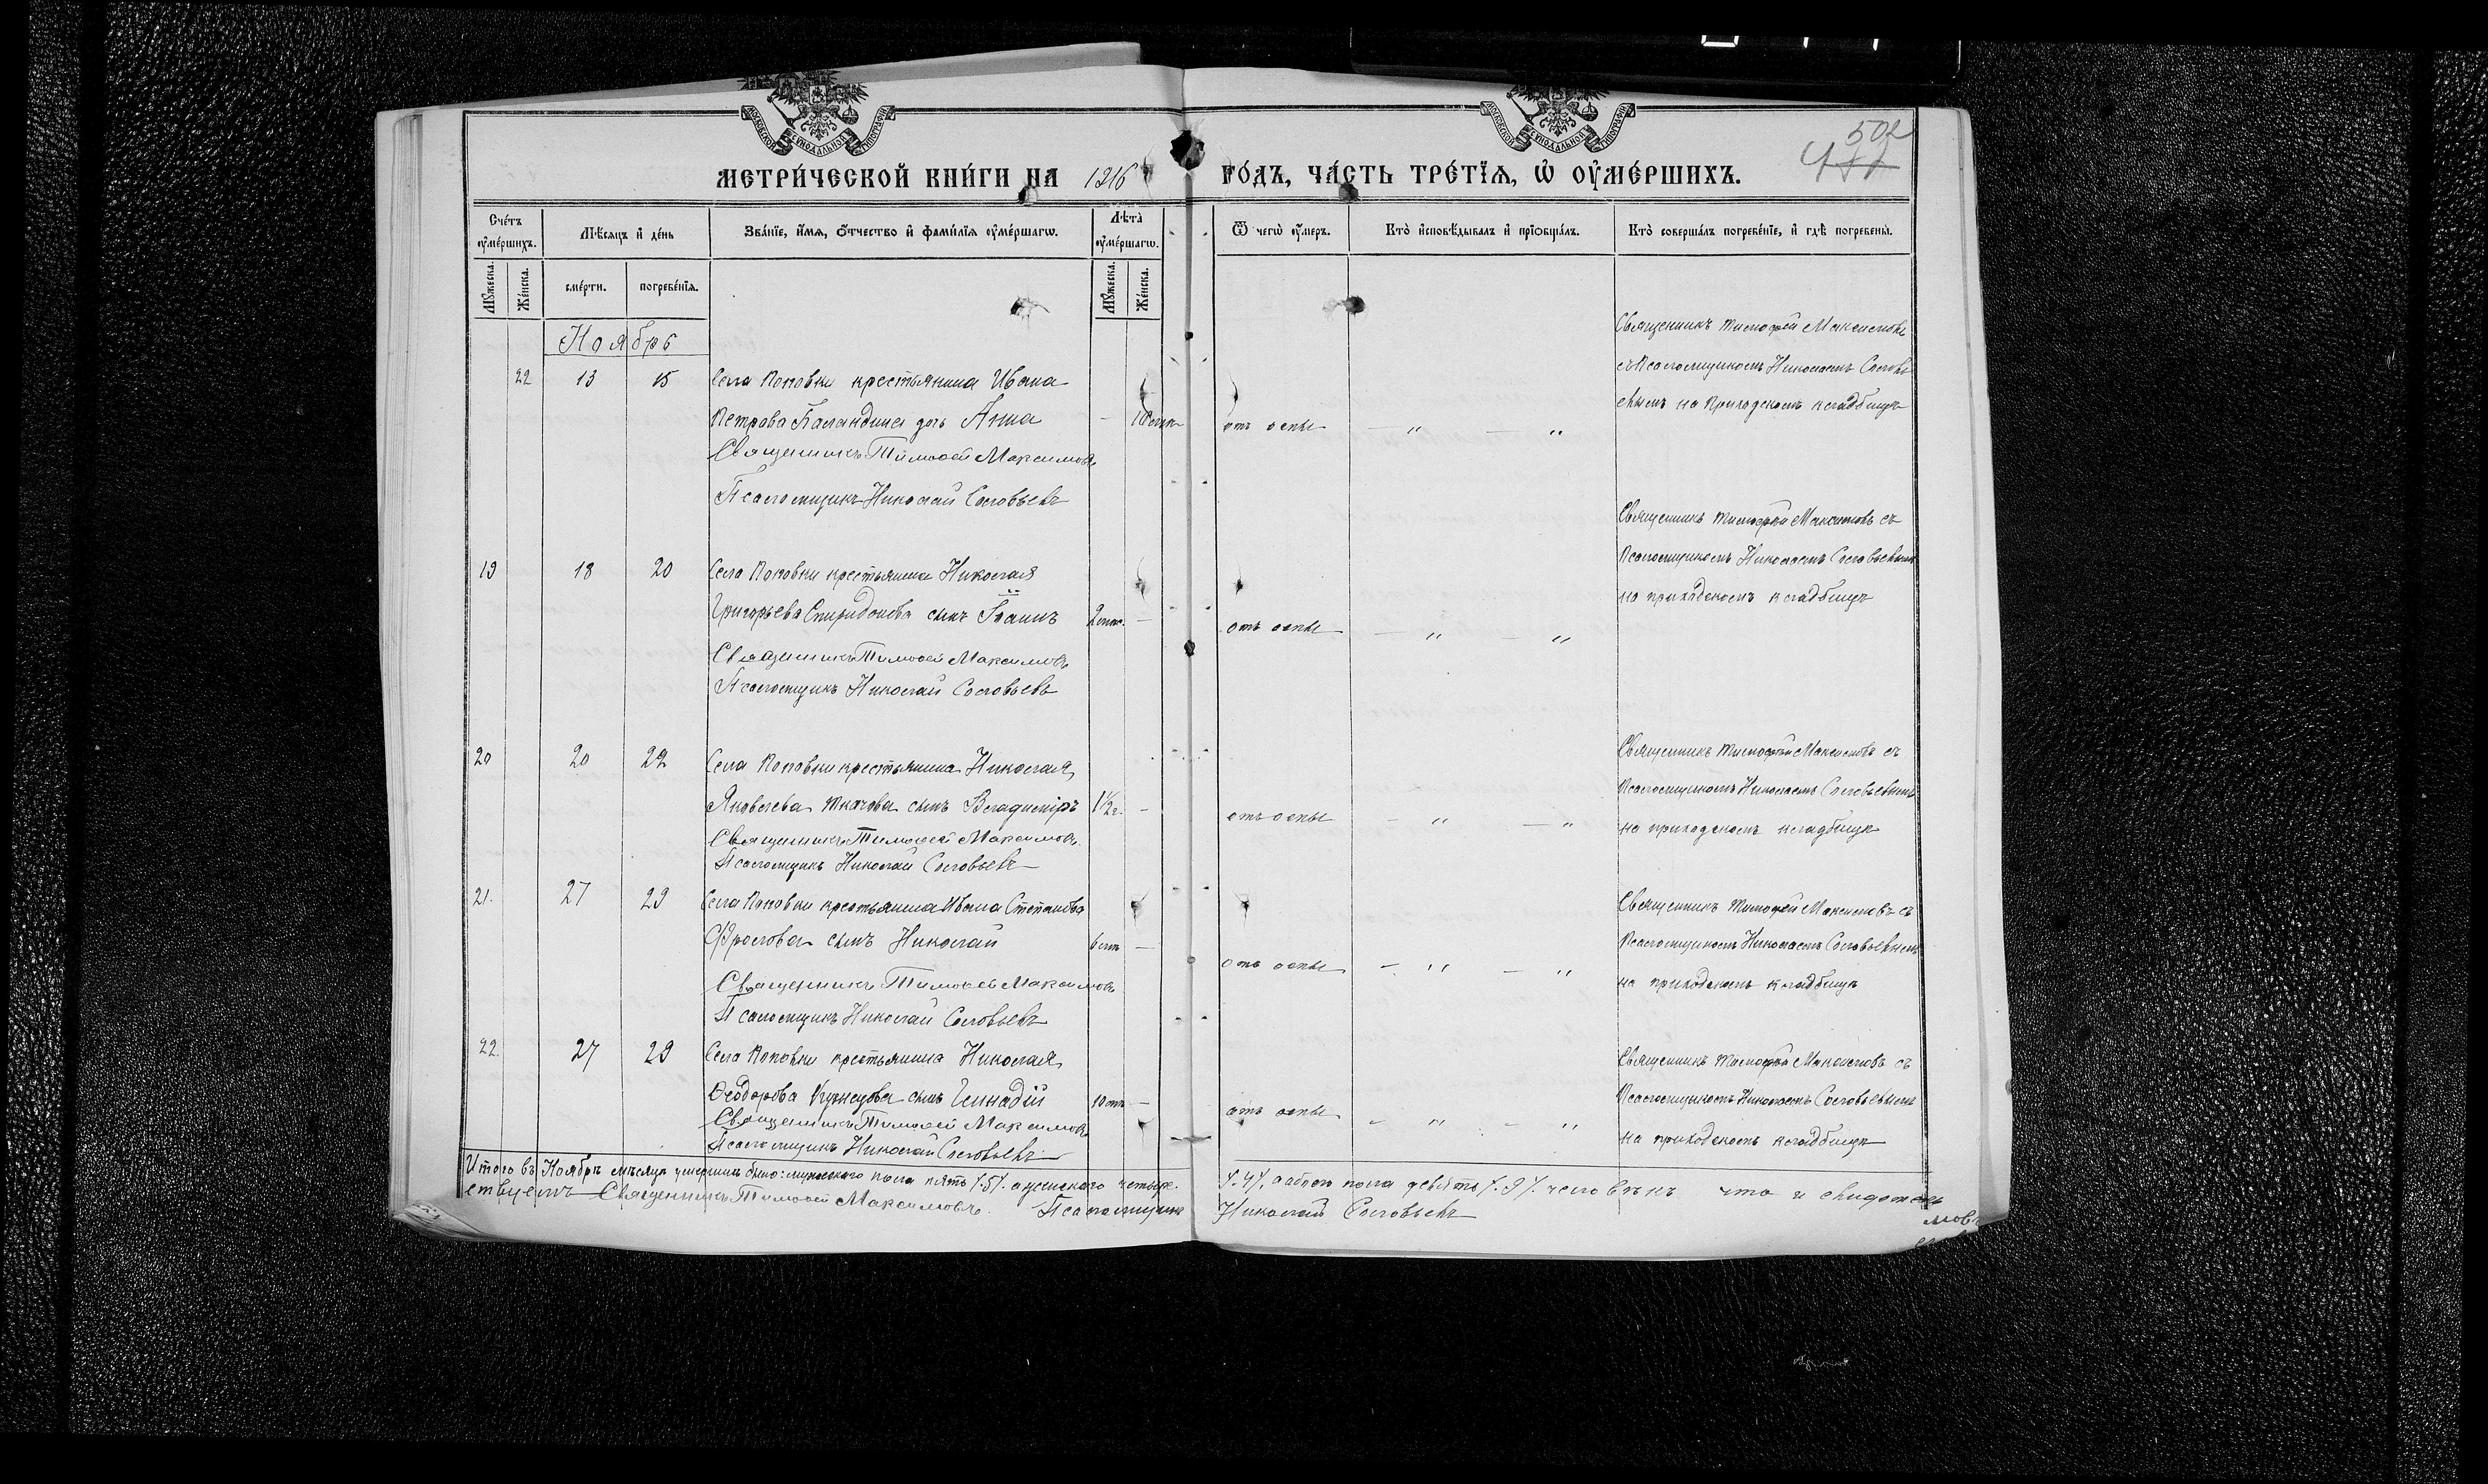 МОСКОВСКОЙ СѴНОДАЛЬНОЙ ТИПОГРАФІИ
МОСКОВСКОЙ СѴНОДАЛЬНОЙ ТИПОГРАФІИ
502
МЕТРИ́ЧЕСКОЙ КНИ́ГИ НА 1916 ГО́ДЪ, ЧА́СТЬ ТРЕ́ТЇѦ, Ѡ҆ ОУ҆МЕ́РШИХЪ.
Сче́тъ оу҆ме́ршихъ.
Мꙋ́жеска.
Же́нска.
Мѣ́сяцъ и҆ де́нь
сме́рти.
погребе́нїѧ.
Зва́нїе, и҆́мѧ, ѻ҆́тчество и҆ фами́лїѧ оу҆ме́ршагѡ.
Лѣ́та̀ оу҆ме́ршагѡ.
Мꙋ́жеска.
Же́нска.
Ѿ чегѡ̀ оу҆́меръ.
Кто̀ и҆сповѣ́дывалъ и҆ прїобща́лъ.
Кто̀ соверша́лъ погребе́нїе, и҆ гдѣ̀ погребены̀.
Ноябрь
22 13 15 Села Поповки крестьянина Ивана
Петрова Баландина дочь Анна
Священникъ Тимоѳей Максимовъ
Псаломщикъ Николай Соловьевъ
отъ оспы — " — "
Священникъ Тимофей Максимовъ
съ Псаломщикомъ Николаемъ Соловь
евымъ на приходскомъ кладбищѣ
19 18 20 Села Поповки крестьянина Николая
Григорьева Спиридонова сынъ Іоаннъ —
Священникъ Тимоѳей Максимовъ
Псаломщикъ Николай Соловьевъ
отъ оспы — " — "
Священникъ Тимофей Максимовъ съ
Псаломщикомъ Николаемъ Соловьевымъ
на приходскомъ кладбищѣ
20 20 22 Села Поповки крестьянина Николая
Яковлева Ткачова сынъ Владиміръ 1½ г. —
Священникъ Тимоѳей Максимовъ
Псаломщикъ Николай Соловьевъ
отъ оспы — " — "
Священникъ Тимофей Максимовъ съ
Псаломщикомъ Николаемъ Соловьевымъ
на приходскомъ кладбищѣ
21. 27 29 Села Поповки крестьянина Ивана Степанова
Фролова сынъ Николай 6 лѣтъ —
Священникъ Тимоѳей Максимовъ
Псаломщикъ Николай Соловьевъ
отъ оспы — " — "
Священникъ Тимофей Максимовъ съ
Псаломщикомъ Николаемъ Соловьевымъ
на приходскомъ кладбищѣ
22. 27 29 Села Поповки крестьянина Николая
Ѳеодорова Кузнецова сынъ Геннадій —
Священникъ Тимоѳей Максимовъ
Псаломщикъ Николай Соловьевъ
отъ оспы — " — "
Священникъ Тимофей Максимовъ съ
Псаломщикомъ Николаемъ Соловьевымъ
на приходскомъ кладбищѣ
Итого въ Ноябрѣ мѣсяцѣ умершихъ было: мужескаго пола пять /.5/. а женскаго четыре /.4/. обоего пола девять /.9/. человѣкъ что и свидетель
ствуемъ Священникъ Тимоѳей Максимовъ. Псаломщикъ Николай Соловьевъ